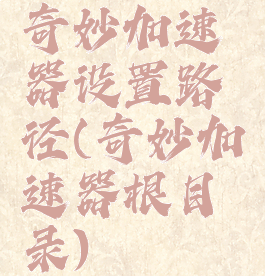 奇妙加速
器设置路
径(奇妙加
速器根目
录)